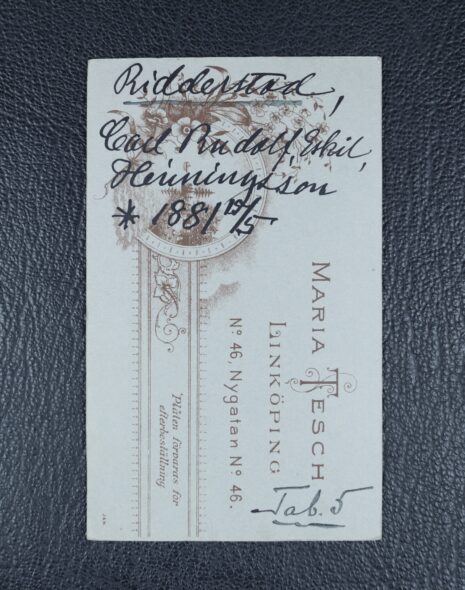 Ridderstad,
Carl Rudolf, Eskil,
Henningsson
* 1881 19/5
MARIA TESCH
LINKÖPING
No 46, Nygatan No 46.
Plåten förvaras för
efterbeställning
Tab. 5